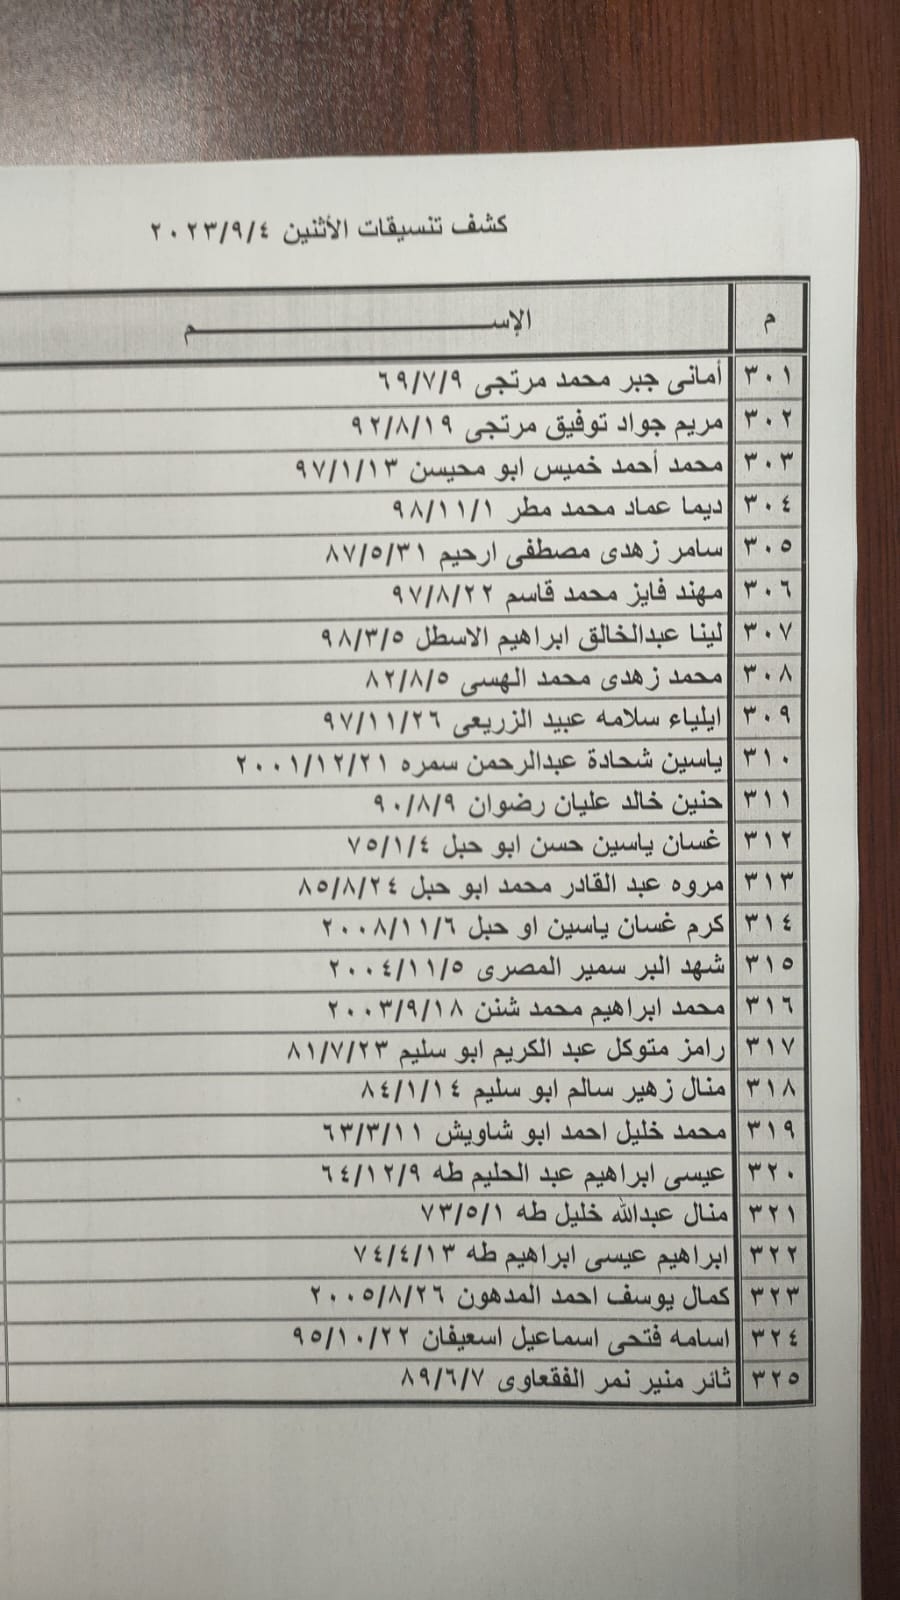 كشف تنسيقات الأثنين ٢٠٢٣/٩/٤
م الإســـــــــــــــــــم
٣٠١ أمانى جبر محمد مرتجى ٦٩/٧/٩
٣٠٢ مريم جواد توفيق مرتجى ٩٢/٨/١٩
٣٠٣ محمد أحمد خميس ابو محيسن ٩٧/١/١٣
٣٠٤ ديما عماد محمد مطر ٩٨/١١/١
٣٠٥ سامر زهدى مصطفى ارحيم ٨٧/٥/٣١
٣٠٦ مهند فايز محمد قاسم ٩٧/٨/٢٢
٣٠٧ لينا عبدالخالق ابراهيم الاسطل ٩٨/٣/٥
٣٠٨ محمد زهدى محمد الهسى ٨٢/٨/٥
٣٠٩ ايلياء سلامه عبيد الزريعى ٩٧/١١/٢٦
٣١٠ ياسين شحادة عبدالرحمن سمره ٢٠٠١/١٢/٢١
٣١١ حنين خالد عليان رضوان ٩٠/٨/٩
٣١٢ غسان ياسين حسن ابو حبل ٧٥/١/٤
٣١٣ مروه عبد القادر محمد ابو حبل ٨٥/٨/٢٤
٣١٤ كرم غسان ياسين او حبل ٢٠٠٨/١١/٦
٣١٥ شهد البر سمير المصرى ٢٠٠٤/١١/٥
٣١٦ محمد ابراهيم محمد شنن ٢٠٠٣/٩/١٨
٣١٧ رامز متوكل عبد الكريم ابو سليم ٨١/٧/٢٣
٣١٨ منال زهير سالم ابو سليم ٨٤/١/١٤
٣١٩ محمد خليل احمد ابو شاويش ٦٣/٣/١١
٣٢٠ عيسى ابراهيم عبد الحليم طه ٦٤/١٢/٩
٣٢١ منال عبدالله خليل طه ٧٣/٥/١
٣٢٢ ابراهيم عيسى ابراهيم طه ٧٤/٤/١٣
٣٢٣ كمال يوسف احمد المدهون ٢٠٠٥/٨/٢٦
٣٢٤ اسامه فتحى اسماعيل اسعيفان ٩٥/١٠/٢٢
٣٢٥ ثائر منير نمر الفقعاوى ٨٩/٦/٧